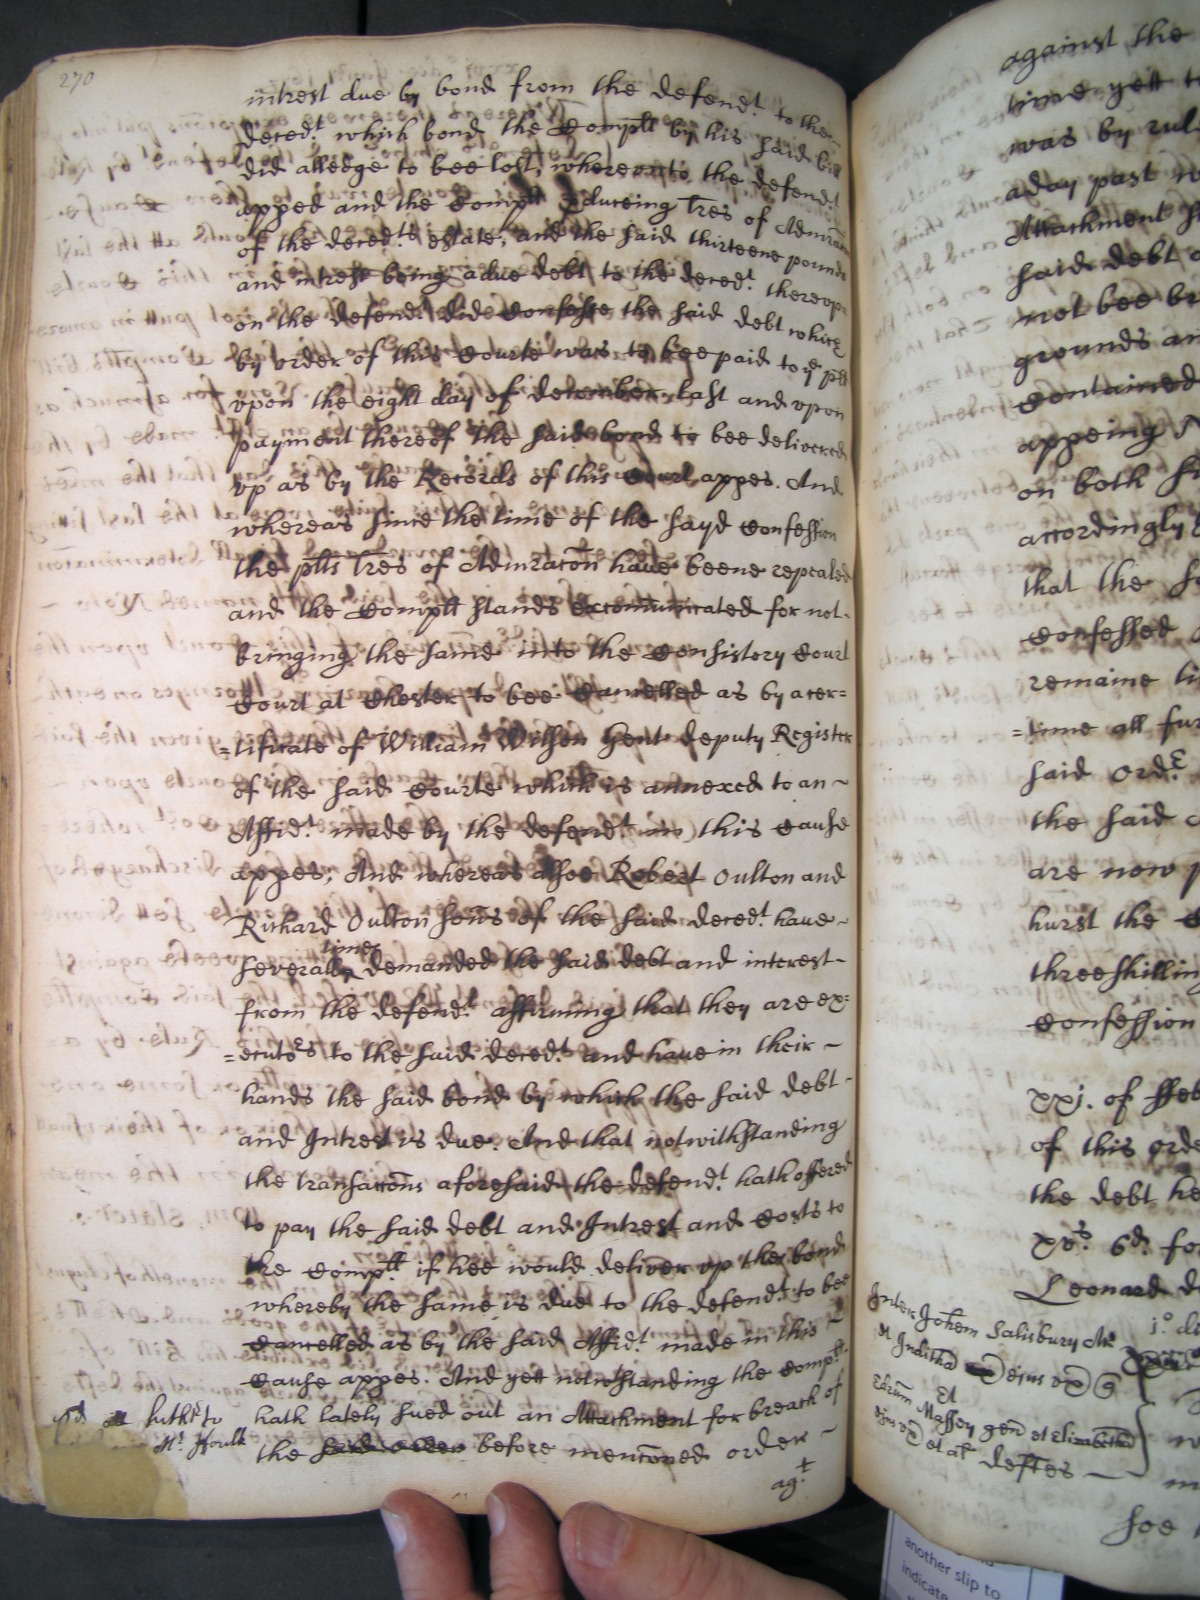 270
intrest due by bond from the defend.t to the
deced.t which bond the Compllt by his said bill
did alledge to bee lost, wherevnto the defendt
apped and the Compllt pduceing tres of Admracon
of the deced.ts estate, and the said thirteene pounds
and intrest being a due debt to the deced.t therevp
on the defend.t did confesse the said debt which
by order of this Courte was to bee paid to ye plt
vpon the eight day of december last and vpon
payment thereof the said bond to bee delivered
vp as by the Records of this Court appes. And
whereas since the time of the sayd Confession
the pllts tres of Admracon have beene repealed
and the Compllt stands excomunicated for not
bringing the same into the Consistory Court
Court at Chester to bee Cancelled as by a cer=
=tificate of William Wilson Gent deputy Register
of the said Courte which is annexed to an ~
Affid.t made by the defend.t in this Cause
appes; And whereas alsoe Robert Oulton and
Richard Oulton sones of the said deced.t have ~
times
severall demanded the said debt and interest ~
from the defend.t affirming that they are ex=
=ecutors to the said deced.t and have in their ~
hands the said bond by which the said debt
and Intrest is due. And that notwithstanding
the transaccons aforesaid the defend.t hath offered
to pay the said debt and Intrest and Costs to
the Comp.llt if hee would deliver vp the bond
whereby the same is due to the defend.t to bee
Cancelled as by the said Affid.t made in this ~
Cause appes. And yett notwthstanding the Compllt
hath lately sued out an Attachment for breach of
the said order before mencioned order ~
ag.t
Mr Hoult
against the
time yett
was by rul
a day past
Attachment
said debt
not bee br
grounds an
Contained
appeing
on both si
accordingly
that the
Confessed
remaine
=time all fur
said Ord.r
the said
are now
hurst the
three shillin
Confession
xxj. of ffeb
of this orde
the debt he
xvs. 6d. for
Leonard
Inter Johem Salisbury Ar
et Juditha ejus vx
Et
Edrum Massey gen et Elizabetha
ejus vx et al deftes
soe
another slip to
indicate